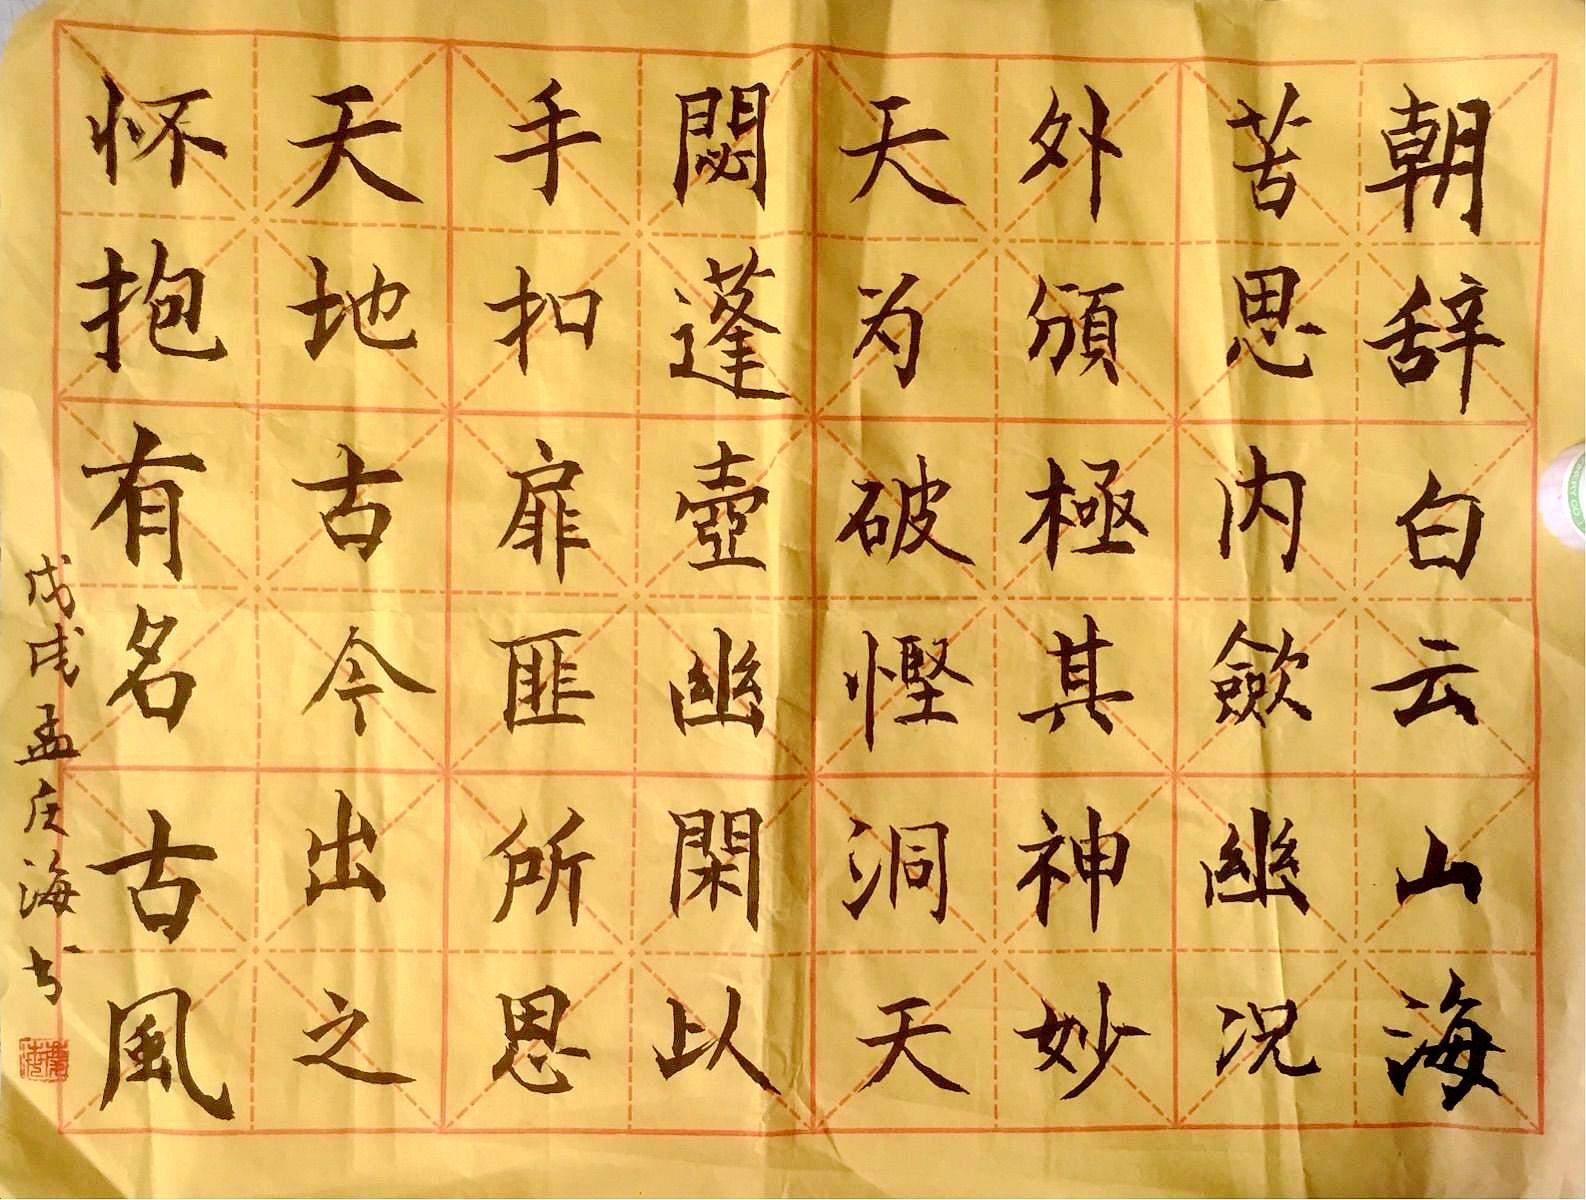 朝辞白云山海
苦思内歛幽况
外頒極其神妙
天为破悭洞天
閟蓬壺幽閑以
手扣扉匪所思
天地古今出之
怀抱有名古風
戊戌孟庆海书